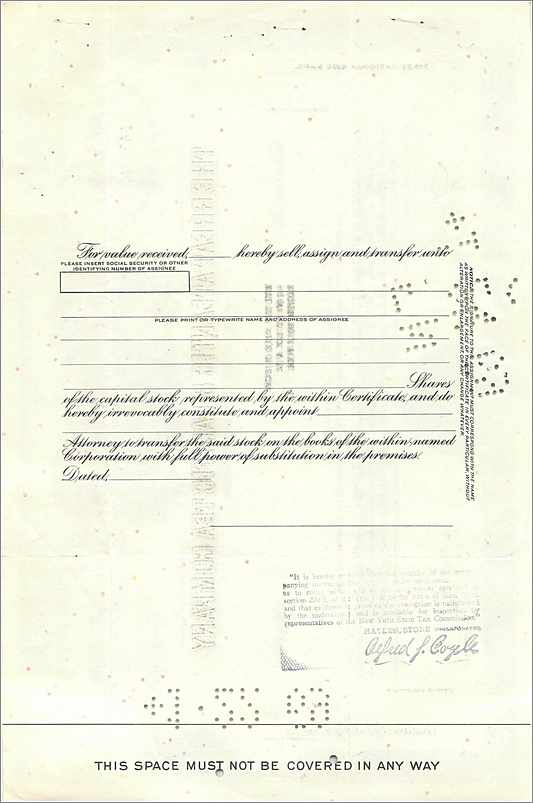 For value received, hereby sell, assign and transfer unto
PLEASE INSERT SOCIAL SECURITY OR OTHER
IDENTIFYING NUMBER OF ASSIGNEE
PLEASE PRINT OR TYPEWRITE NAME AND ADDRESS OF ASSIGNEE
Shares
of the capital stock, represented by the within Certificate, and do
hereby irrevocably constitute and appoint
Attorney to transfer the said stock on the books of the within named
Corporation, with full power of substitution in the premises.
Dated,
NOTICE: THE SIGNATURE TO THIS ASSIGNMENT MUST CORRESPOND WITH THE NAME
AS WRITTEN UPON THE FACE OF THE CERTIFICATE IN EVERY PARTICULAR, WITHOUT
ALTERATION OR ENLARGEMENT OR ANY CHANGE WHATEVER.
"It is hereby
panying
as to
section
and that
by the and is available for inspection
representatives of the New York State Tax Commission"
HAYDEN, STONE INCORPORATED
Alfred J. Coyle
THIS SPACE MUST NOT BE COVERED IN ANY WAY